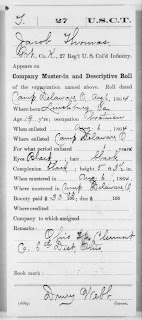 T. 27 U.S.C.T.
Jacob Thomas
Pvt., Co. K, 27 Reg't U. S. Col'd Infantry.
Appears on
Company Muster-in and Descriptive Roll
of the organization named above. Roll dated
Camp Delaware O. Aug 6, 1864.
Where born
Age 19 y'rs; occupation
When enlisted Aug , 1864.
Where enlisted Camp Delaware O.
For what period enlisted years.
Eyes Black; hair Black
Complexion Black; height 5 ft. in.
When mustered in Aug 6, 1864.
Where mustered in Camp Delaware O.
Bounty paid $ 33 ; due $ 100
Where credited
Company to which assigned
Remarks: Ohio Clermont
Co. 6th Dist. Ohio
Book mark:
Drury Webb
Copyist.